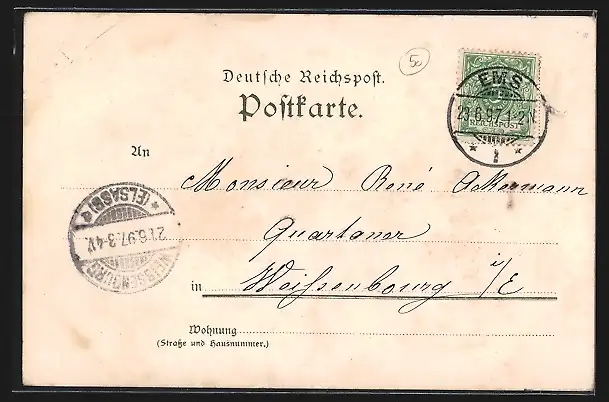 50
Deutsche Reichspost.
Postkarte.
EMS
23.6.97.1-2N.
* 1 *
REICHSPOST
An
Monsieur René Ackermann
Quartaner
in Weissenbourg i/E
WEISSENBURG
97.3-4N.
* (ELSASS) *
Wohnung
(Straße und Hausnummer.)